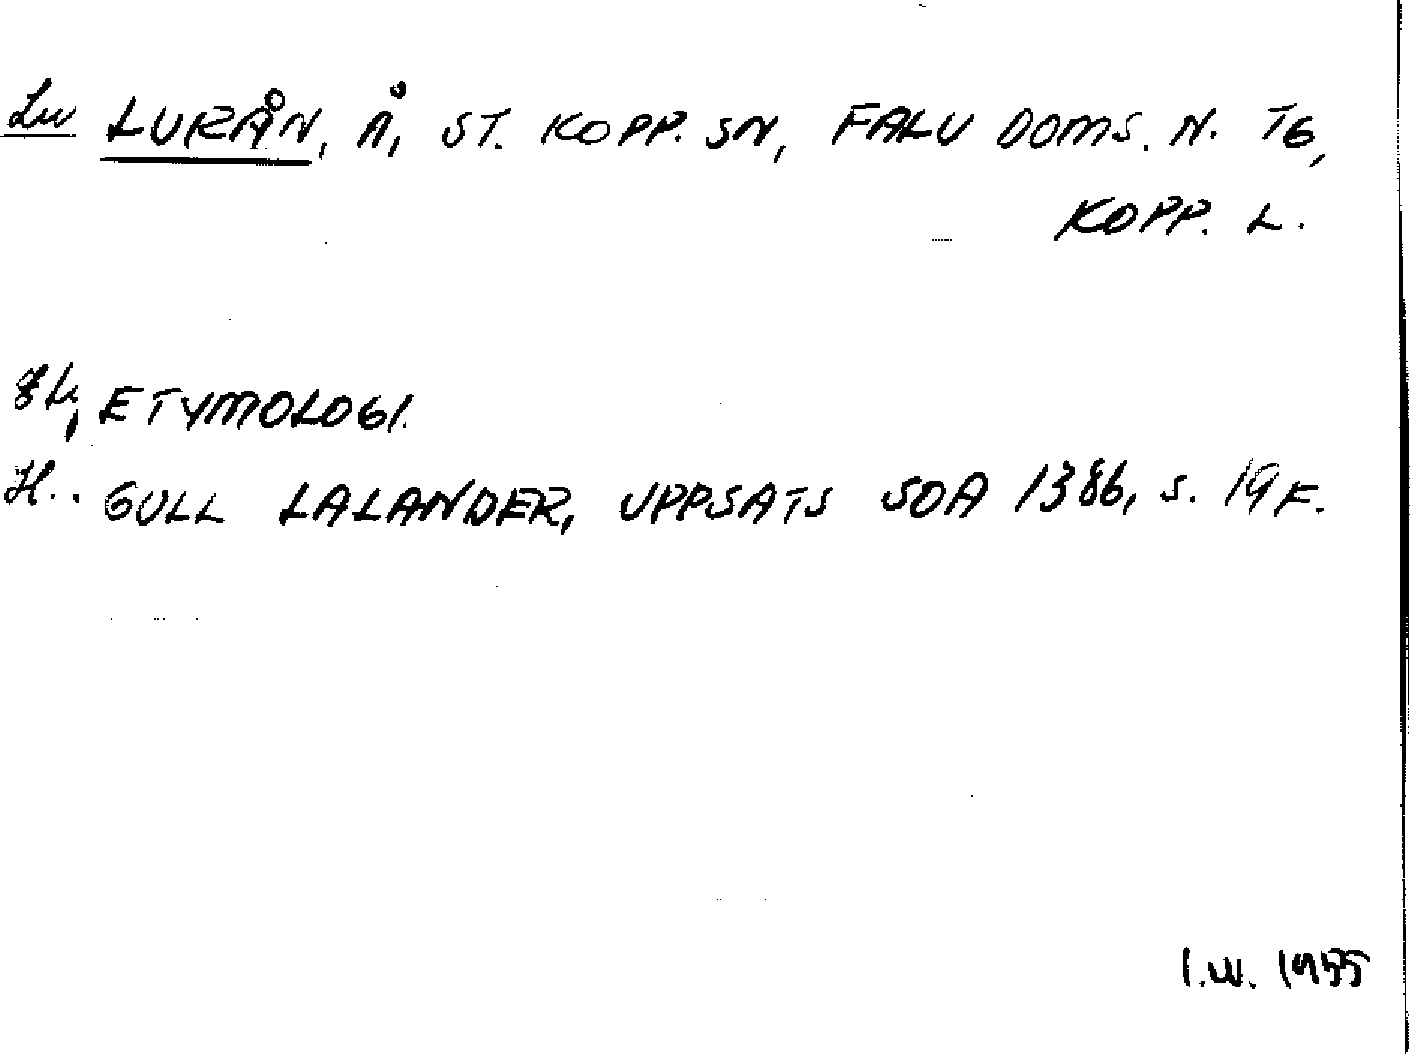 LURÅN, Å, ST. KOPP. SN, FALU DOMS. N. TG,
KOPP. L.
ETYMOLOGI.
GULL LALANDER, UPPSATS SOA 1386, S. 19 F.
I.W. 1955